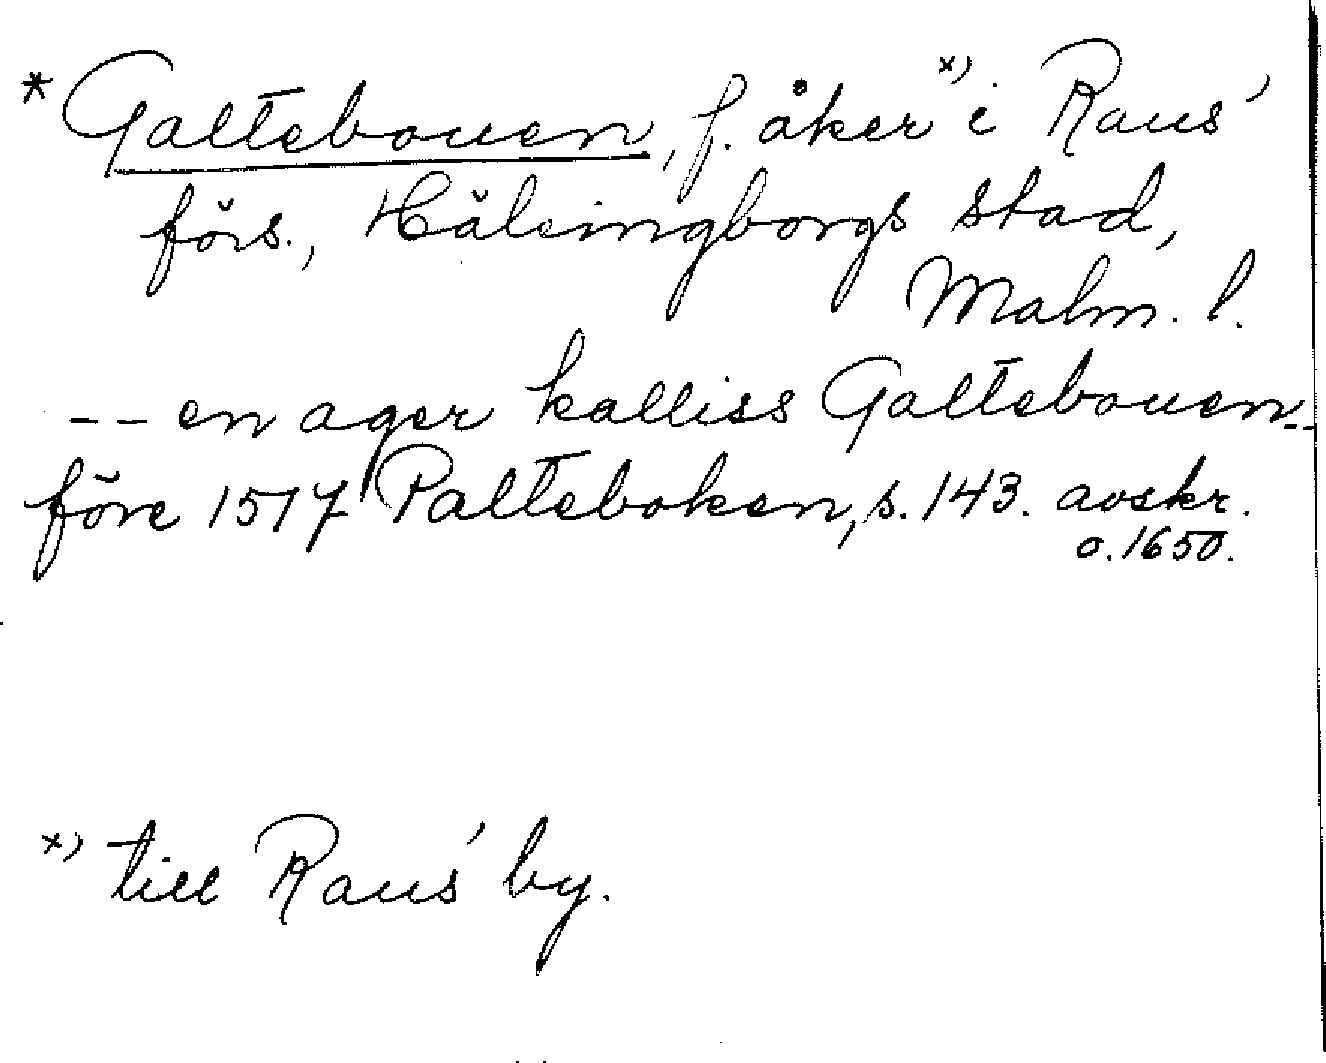 * Galtebouen, f. åker x) i Raus'
förs., Hälsingborgs stad,
Malm. l.
-- en ager kalliss Galtebouen --
före 1517 Palteboken, s. 143. avskr.
o. 1650.
x) till Raus' by.